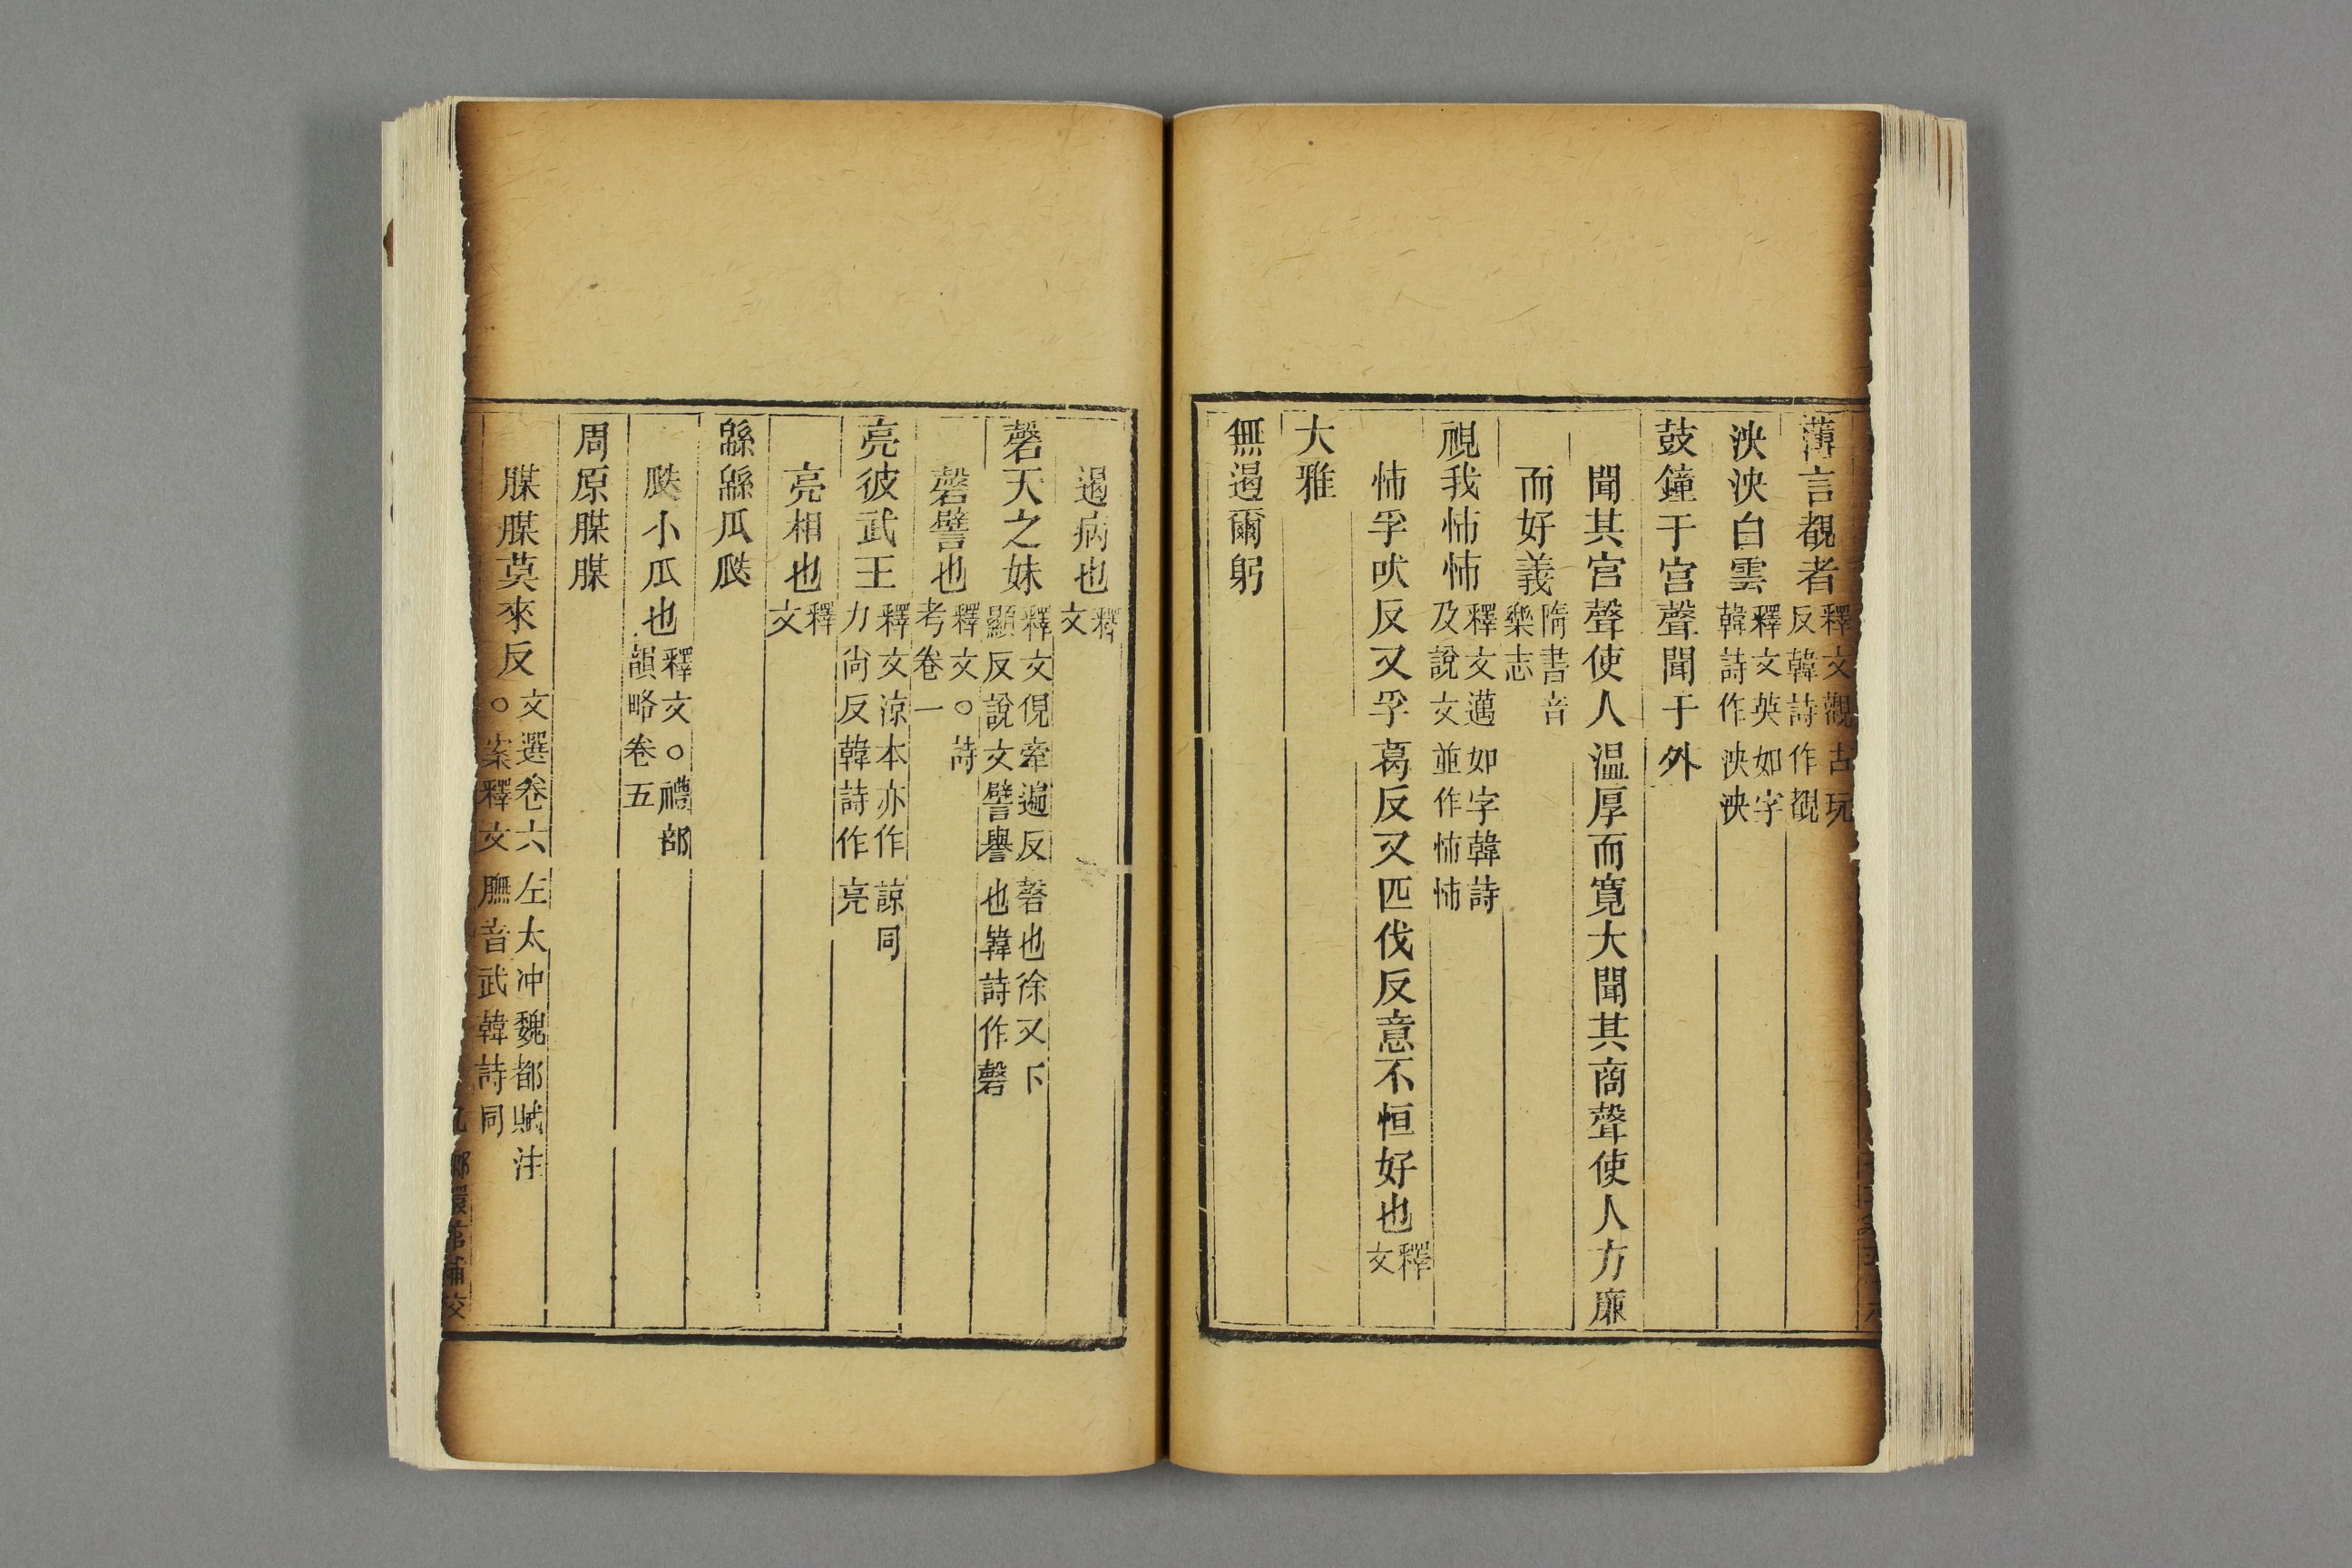 薄言覩者釋文觀古玩反韓詩作覩
泱泱白雲釋文英如字韓詩作泱泱
鼓鐘于宮聲聞于外
聞其宮聲使人温厚而寛大聞其商聲使人方廉
而好義隋書音樂志
視我怖怖釋文邁如字韓詩及說文並作怖怖
怖孚吠反又孚葛反又匹伐反意不恒好也釋文
大雅
無遏爾躬
遏病也釋文
磬天之妹釋文俔牽遍反磬也徐又下顯反說文譬譽也韓詩作磬
磬譬也釋文○詩考卷一
亮彼武王釋文涼本亦作諒同力尙反韓詩作亮
亮相也釋文
緜緜瓜瓞
瓞小瓜也釋文○禮部韻略卷五
周原腜腜
腜腜莫來反文選卷六左太冲魏都賦注○案釋文膴音武韓詩同
嬛館補校